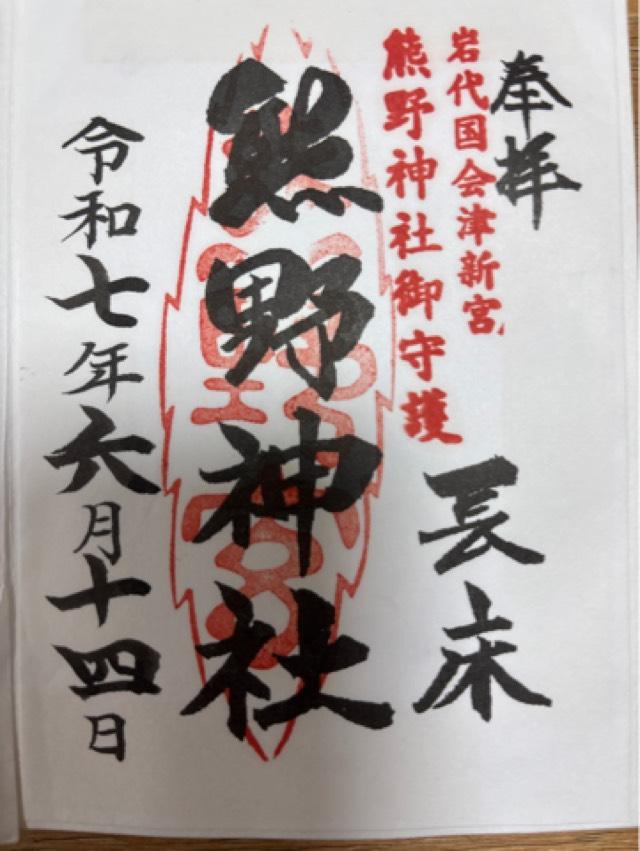 奉拝
長床
岩代国会津新宮
熊野神社御守護
熊野神社
令和七年六月十四日